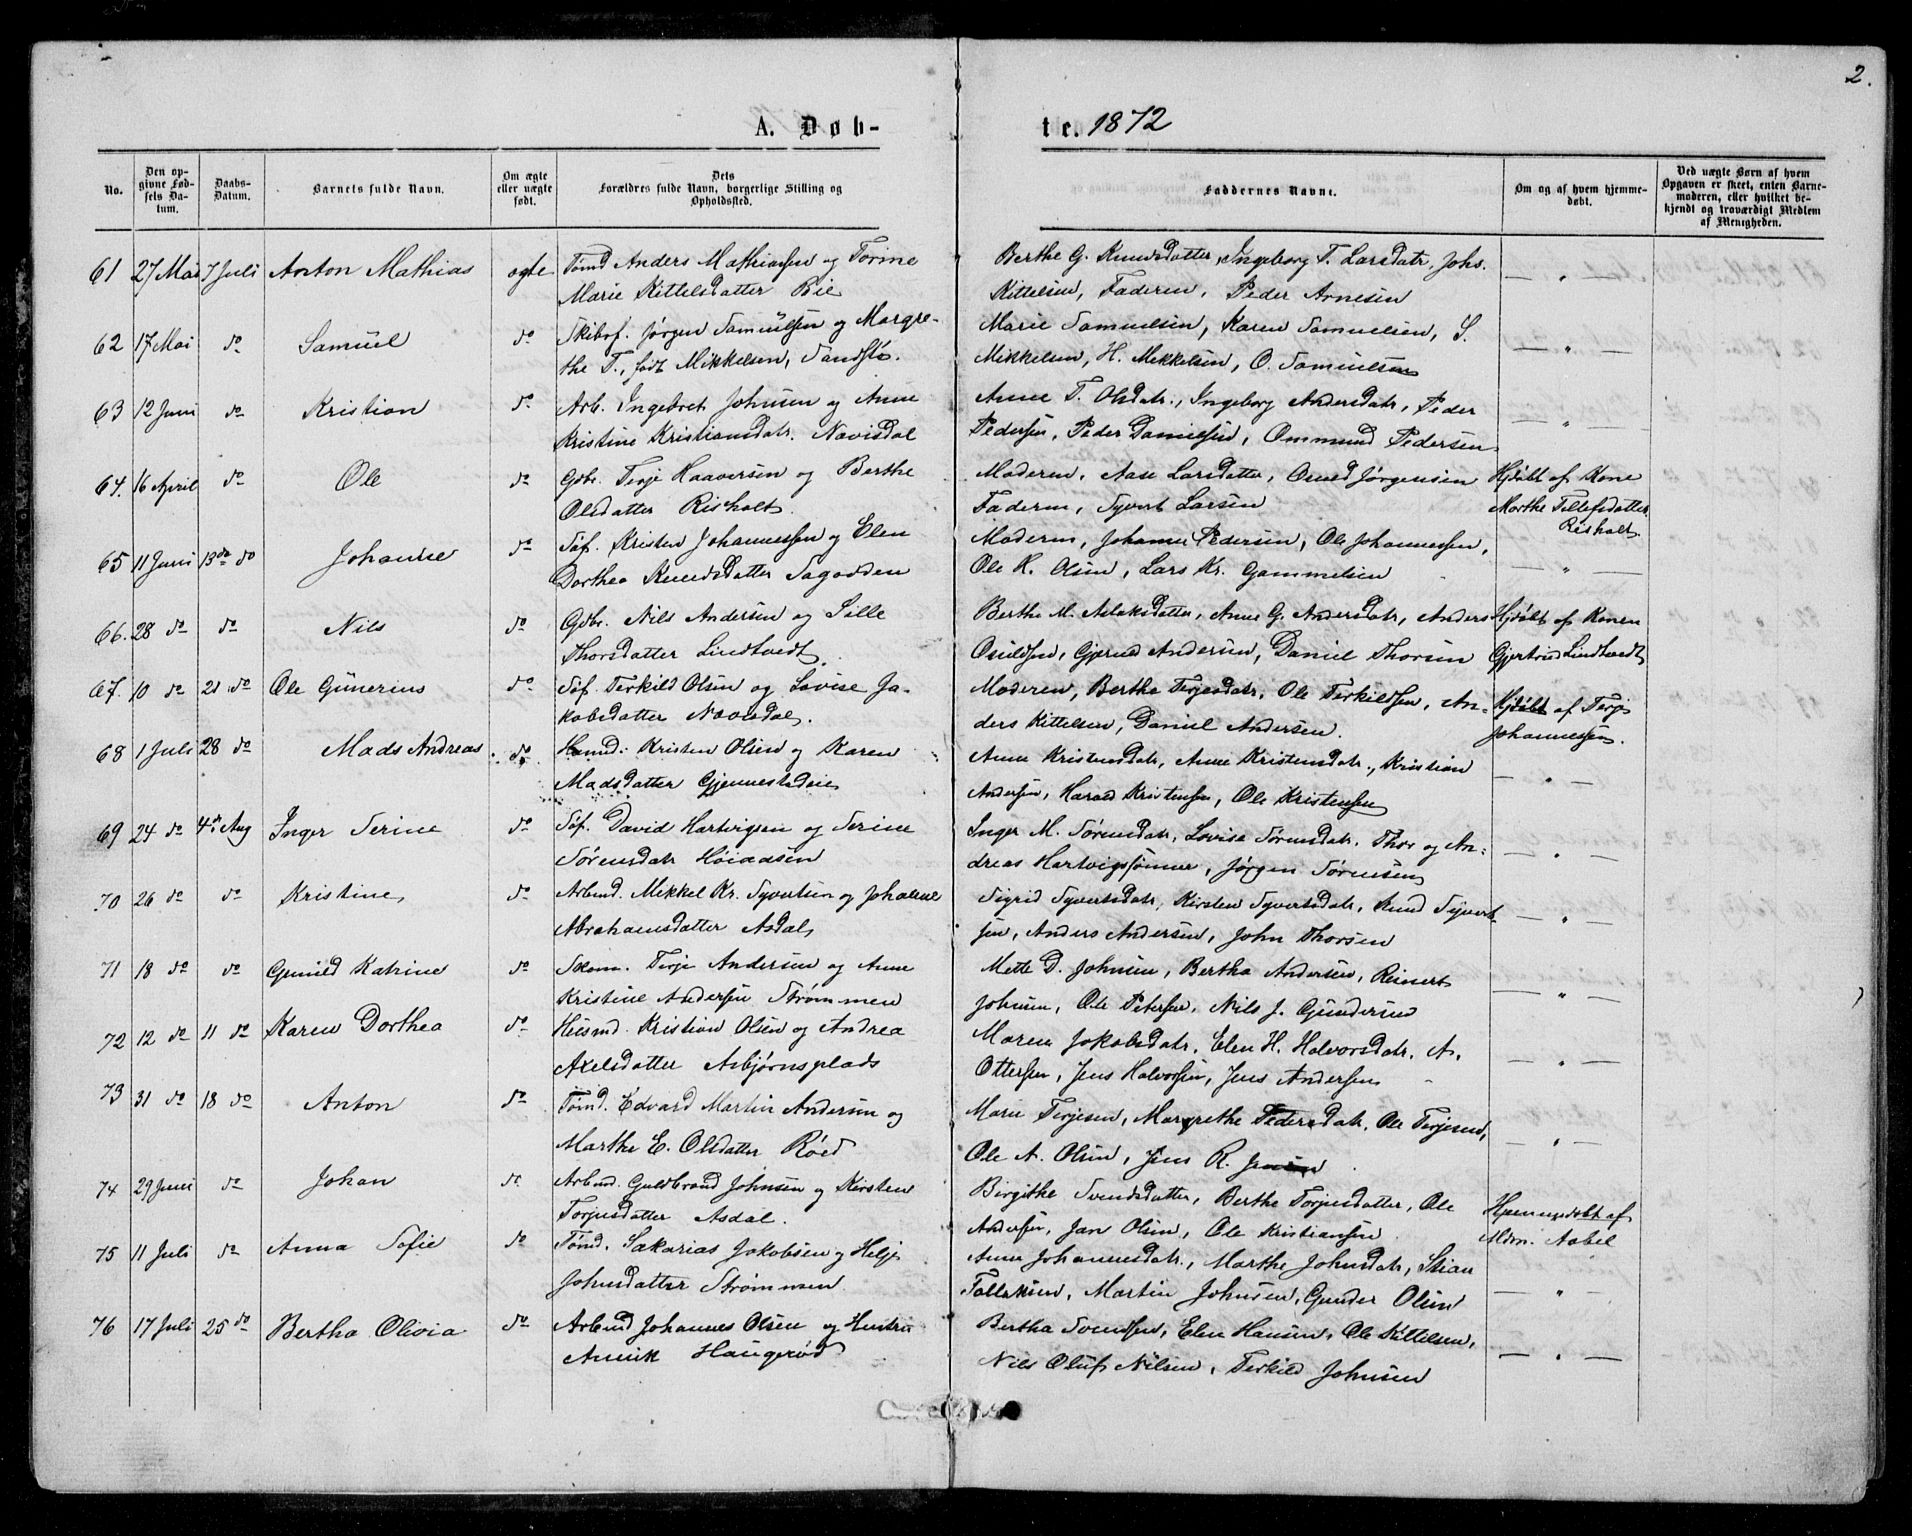 2.
A. Døb-te. 1872
No.
Den op-
givne Fød-
sels Da-
tum.
Daabs-
Datum.
Barnets fulde Navn.
Om ægte
eller uægte
født.
Dets
Forældres fulde Navn, borgerlige Stilling og
Opholdssted.
Faddernes Navne.
Om og af hvem hjemme-
døbt.
Ved uægte Børn af hvem
Opgaven er skeet, enten Barne-
moderen, eller hvilket be-
kjendt og troværdigt Medlem
af Menigheden.
61 27 Mai 7 Juli Anton Mathias ægte Tømd Anders Mathiassen og Torine Berthe G. Knudsdatter, Ingeborg T. Larsdatr, Johs. — " —
Marie Kittelsdatter Bie Kittelsen, Faderen, Peder Arnesen
62 17 Mai do Samuel do Skibsf. Jørgen Samuelsen og Margre- Marie Samuelsen, Karen Samuelsen, S. — " —
the T., født Mikkelsen, Sandstø. Mikkelsen, H. Mikkelsen, O. Samuelsen
63 12 Juni do Kristian do Arb. Ingebret Johnsen og Anne Anne T. Olsdatr., Ingeborg Andersdatr, Peder — " —
Kristine Kristiansdatr. Navisdal Pedersen, Peder Danielsen, Ommund Pedersen
64. 16 April do Ole do Gdbr. Terje Haaversen og Berthe Moderen, Aase Larsdatter, Osuld Jørgensen Hjdøbt af Kone
Olsdatter Risholt. Faderen, Syvert Larsen Marthe Tellefsdatter
Risholt
65 11 Juni 13de do Johanne do Søf. Kristen Johannessen og Elen Moderen, Johanne Pedersen, Ole Johannessen, — " —
Dorthea Knudsdatter Sagodden Ole K. Olsen, Lars Kr. Gammelsen
66. 28 do do Nils do Gdbr. Nils Andersen og Sille Berthe M. Aslaksdatter, Anne G. Andersdatr, Anders Hjdøbt af Konen
Thorsdatter Lindtvedt. Osuldsen, Gjeruld Andersen, Daniel Thorsen Gjertrud Lindtvedt
67. 10 do 21 do Ole Gunerius do Søf. Terkild Olsen og Lovise Ja- Moderen, Berthe Terjesdatr, Ole Terkildsen, An- Hjdøbt af Terje
kobsdatter Navisdal. ders Kittelsen, Daniel Andersen. Johannessen.
68 1 Juli 28 do Mads Andreas do Husmd. Kristen Olsen og Karen Anne Kristensdatr, Anne Kristensdatr., Kristian — " —
Madsdatter Gjennestadeie Andersen, Harald Kristensen, Ole Kristensen
69 24 do 4de Aug Inger Serine do Søf. David Hartvigsen og Serine Inger M. Sørensdatr, Lovise Sørensdatr, Thor og An- — " —
Sørensdatr Høiaasen dreas Hartvigssønner, Jørgen Sørensen
70 26 do do Kristine do Arbmd. Mikkel Kr. Syvertsen og Johanne Sigrid Syvertsdatr, Kirsten Syvertsdatr, Knud Syvert- — " —
Abrahamsdatter Asdal sen, Anders Andersen, John Thorsen
71 18 do do Gunild Katrine do Skom. Terje Andersen og Anne Mette D. Johnsen, Bertha Andersen, Reinert — " —
Kristine Andersen Strømmen Johnsen, Ole Petersen, Nils J. Gundersen
72 12 do 11 do Karen Dorthea do Husmd. Kristian Olsen og Andrea Maren Jakobsdatr, Elen H. Halvorsdatr. A. — " —
Axelsdatter Asbjørnsplads Ottersen, Jens Halvorsen, Jens Andersen
73 31 do 18 do Anton do Tømd. Edvard Martin Andersen og Marie Terjesen, Margrethe Pedersdatr, Ole Terjesen, — " —
Marthe E. Olsdatter Røed Ole A. Olsen, Jens R. Jensen
74 29 Juni do Johan do Arbmd. Guldbrand Johnsen og Kirsten Birgithe Svendsdatter, Berthe Torjusdatter, Ole Hjemmedøbt af
Torjusdatter Asdal. Andersen, Jan Olsen, Ole Kristiansen Mdm. Aabel
75 11 Juli do Anna Sofie do Tømd. Sakarias Jakobsen og Helje Anne Johannesdatr., Marthe Johnsdatr, Stian — " —
Johnsdatter Strømmen Tallaksen, Martin Johnsen, Gunder Olsen
76 17 Juli 25 do Bertha Olivia do Arbmd Johannes Olsen og Hustru Bertha Svendsen, Elen Hansen, Ole Kittelsen, — " —
Annik Haugerød Nils Oluf Nilsen, Terkild Johnsen